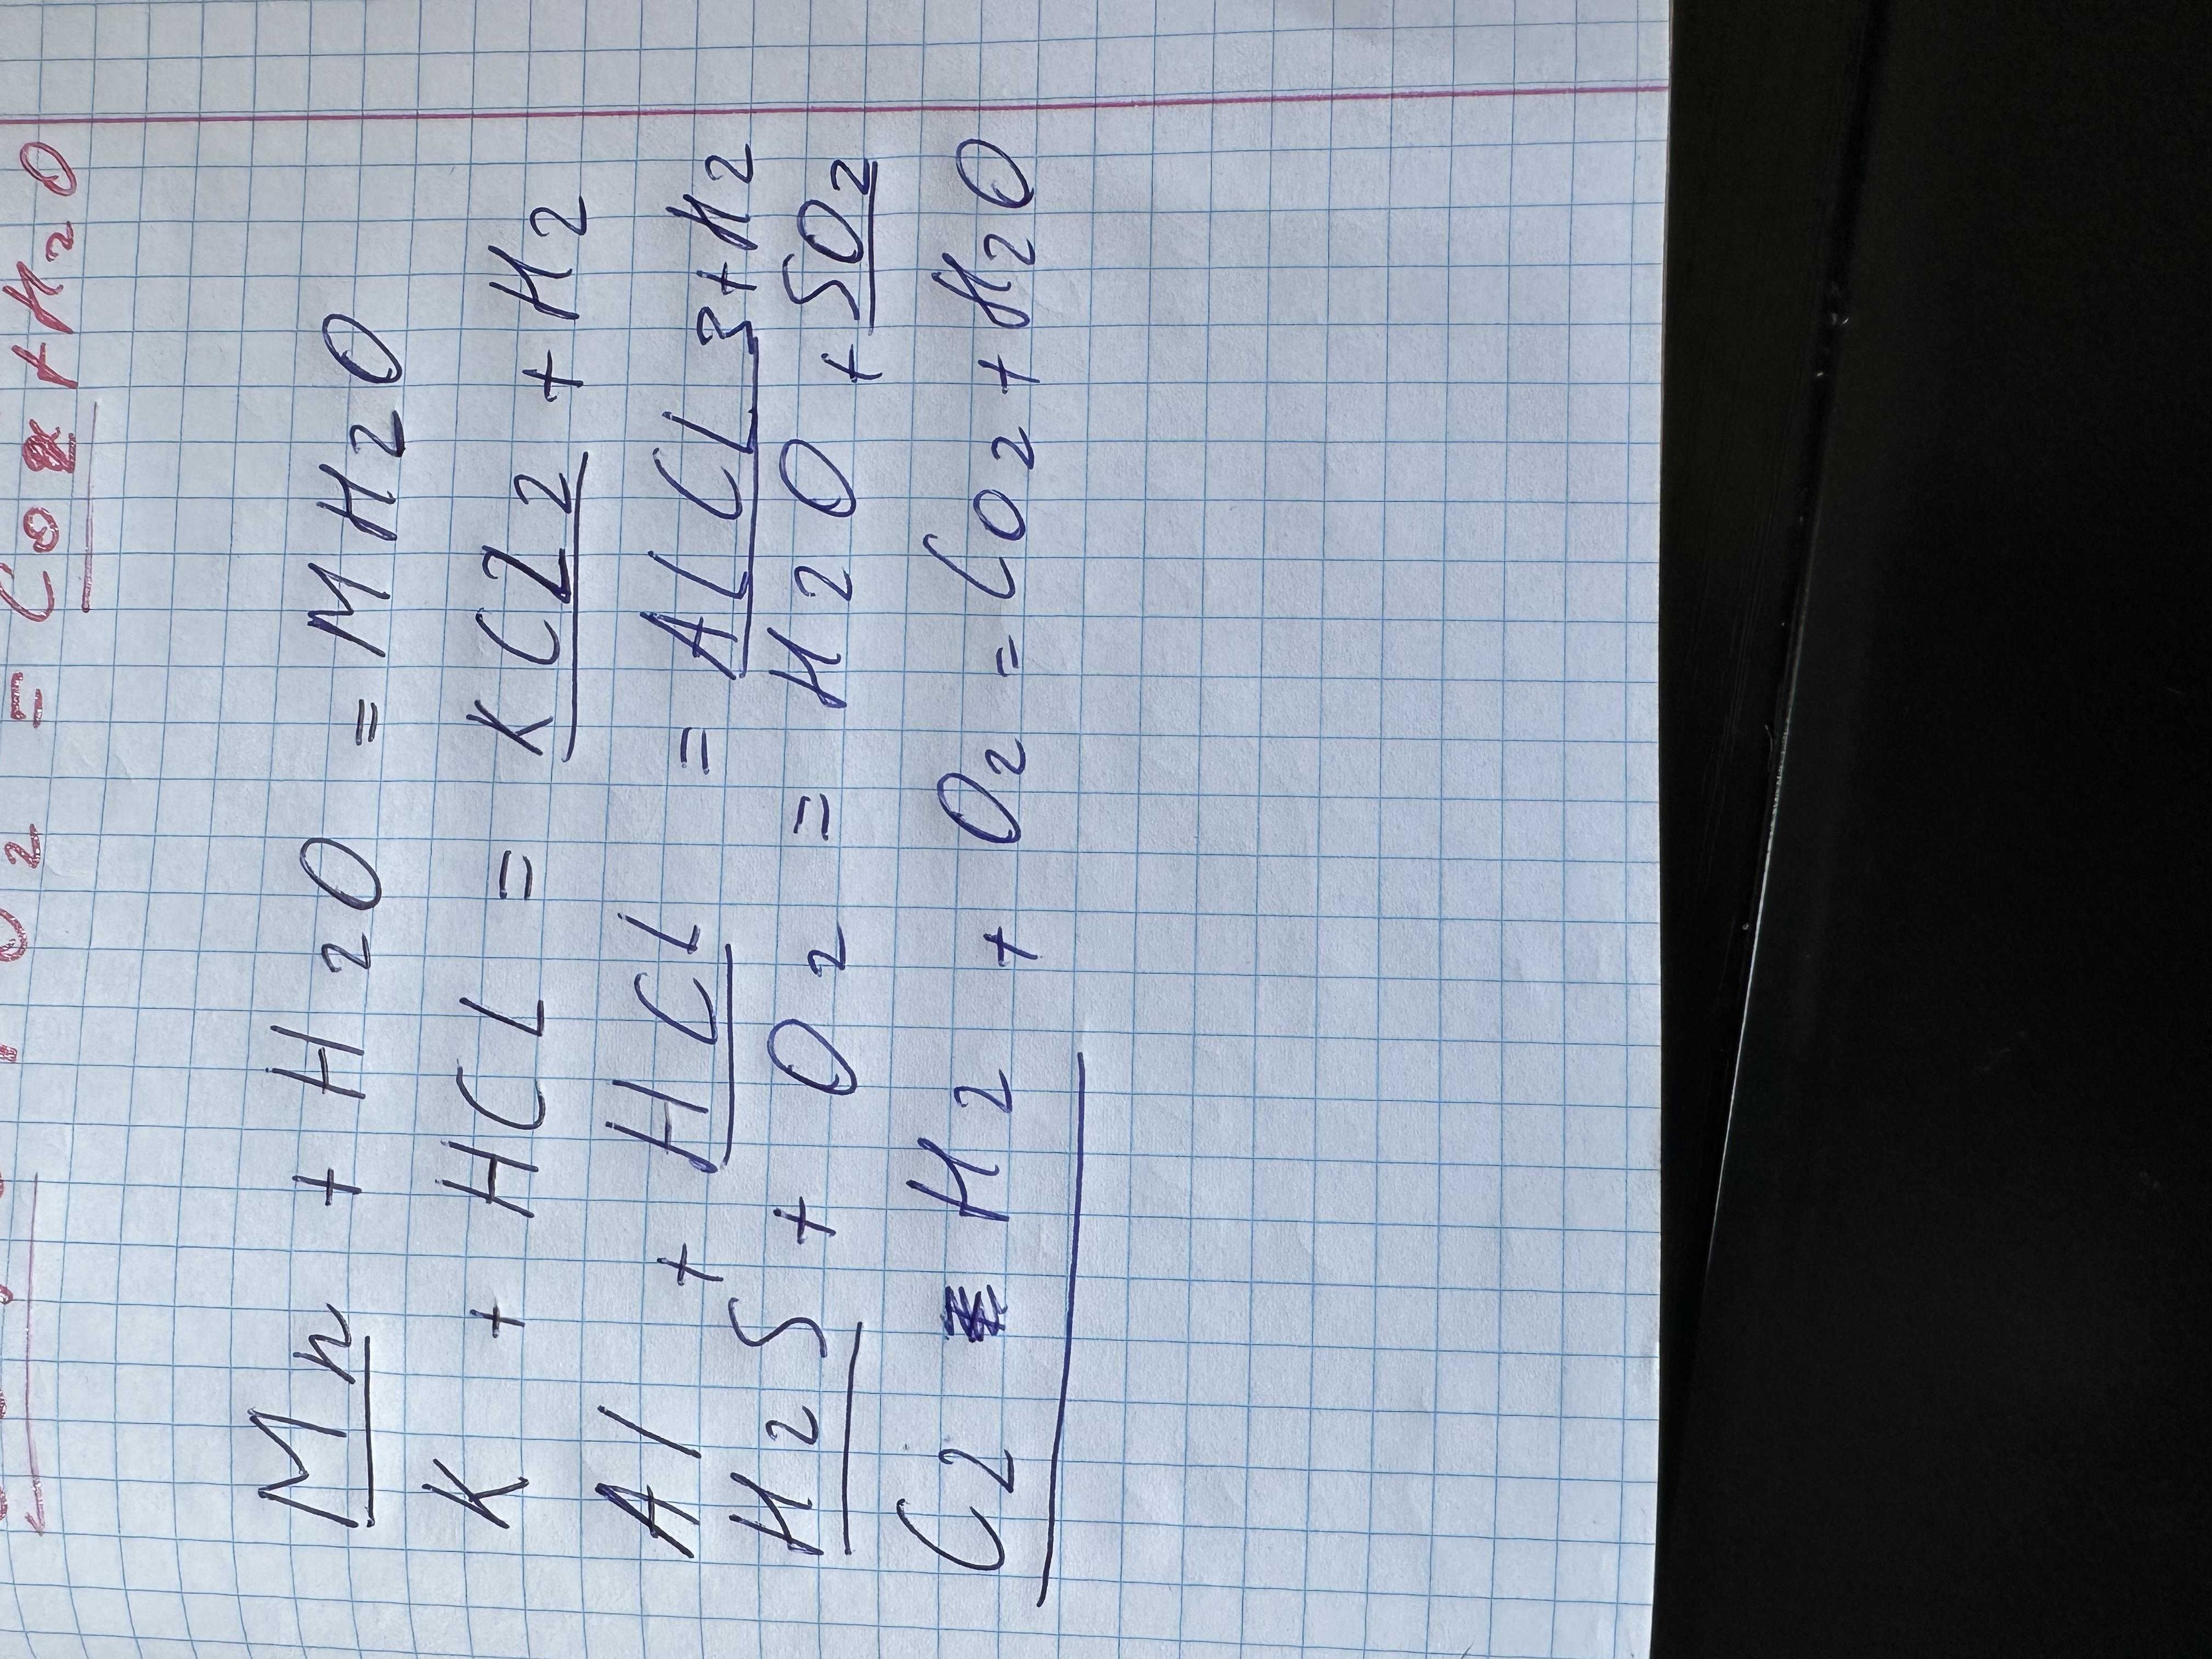 = Co2 + H2O
Mn + H2O = MH2O
K + HCL = KCL2 + H2
Al + HCL = ALCL3+H2
H2S + O2 = H2O + SO2
C2 H2 + O2 = Co2 + H2O